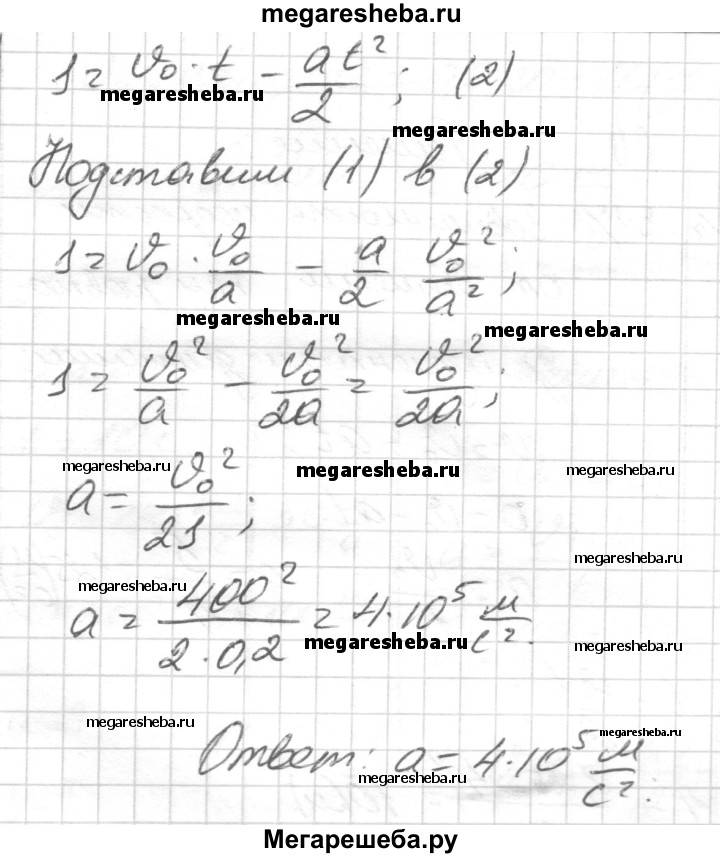 megaresheba.ru
s = υ₀ · t − at²/2 ; (2)
megaresheba.ru
megaresheba.ru
Подставим (1) в (2)
s = υ₀ · υ₀/a − a/2 υ₀²/a² ;
megaresheba.ru
megaresheba.ru
s = υ₀²/a − υ₀²/2a = υ₀²/2a ;
megaresheba.ru
megaresheba.ru
megaresheba.ru
a = υ₀²/2s ;
megaresheba.ru
megaresheba.ru
a = 400²/2·0,2 = 4·10⁵ м/с².
megaresheba.ru
megaresheba.ru
megaresheba.ru
megaresheba.ru
Ответ: a = 4·10⁵ м/с².
megaresheba.ru
Мегарешеба.ру